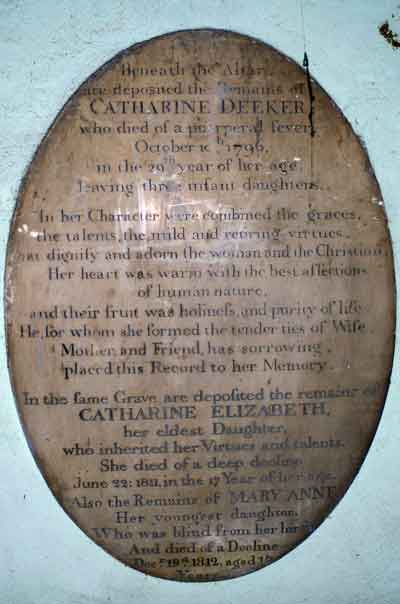 Beneath the Altar,
are deposited the Remains of
CATHARINE DEEKER,
who died of a puerperal fever,
October 10th 1796,
in the 29th year of her age,
leaving three infant daughters.
In her Character were combined the graces,
the talents, the mild and retiring virtues,
that dignify and adorn the woman and the Christian,
Her heart was warm with the best affections
of human nature,
and their fruit was holiness, and purity of life.
He, for whom she formed the tender ties of Wife,
Mother, and Friend, has sorrowing,
placed this Record to her Memory.
In the same Grave are deposited the remains of
CATHARINE ELIZABETH,
her eldest Daughter,
who inherited her Virtues and talents.
She died of a deep decline
June 22: 1811, in the 17 Year of her age.
Also the Remains of MARY ANNE
Her youngest daughter,
Who was blind from her birth
And died of a Decline
Decr. 19th 1812, aged
Years